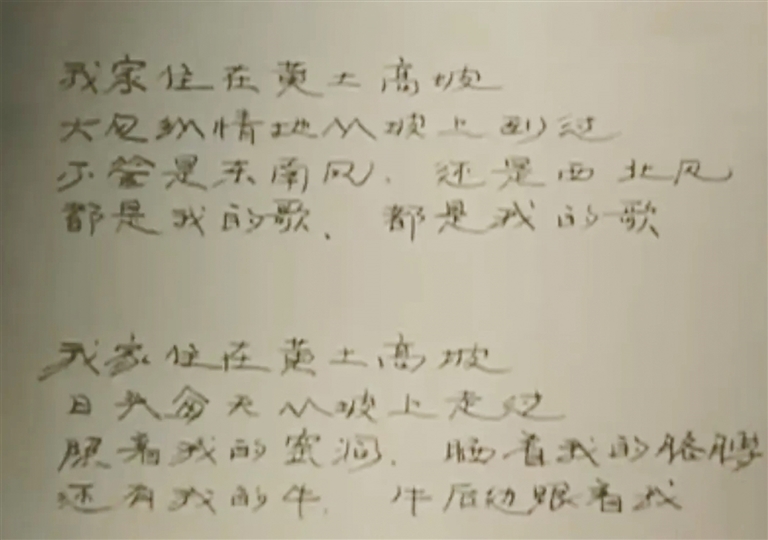 我家住在黄土高坡
大风纵情地从坡上刮过
不管是东南风、还是西北风
都是我的歌、都是我的歌
我家住在黄土高坡
日头每天从坡上走过
照着我的窑洞、晒着我的胳膊
还有我的牛、牛后边跟着我